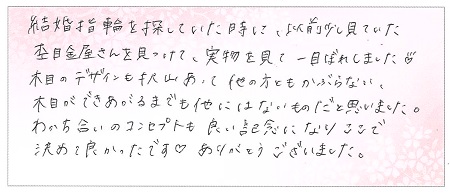 結婚指輪を探していた時に、以前少し見ていた
杢目金屋さんを見つけて、実物を見て一目ぼれしました♡
木目のデザインも沢山あって他の方ともかぶらない、
木目ができあがるまでも他にはないものだと思いました。
わかち合いのコンセプトも良い記念になりここで
決めて良かったです♡ ありがとうございました。